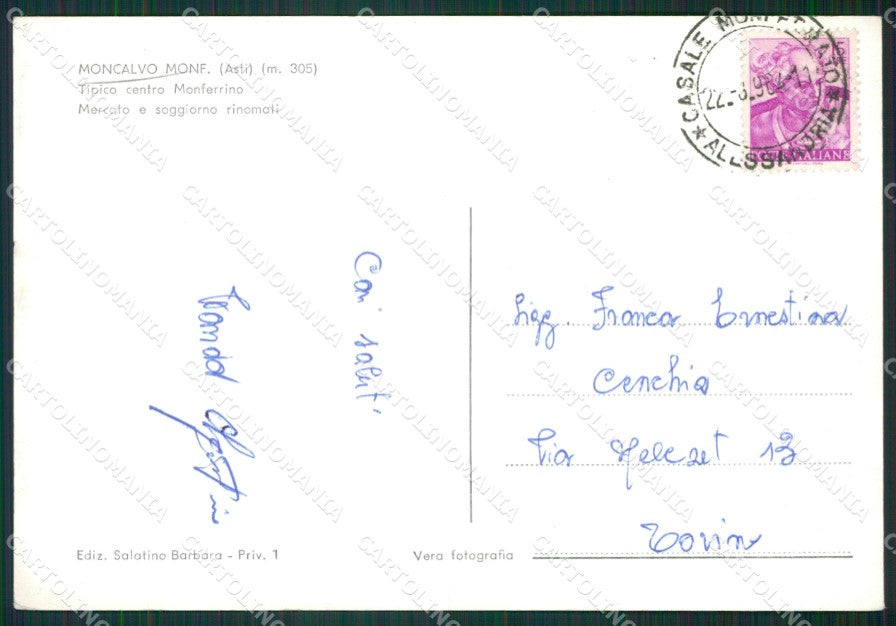 MONCALVO MONF. (Asti) (m. 305)
Tipico centro Monferrino
Mercato e soggiorno rinomati
CASALE MONFERRATO
ALESSANDRIA
POSTE ITALIANE
Cari saluti
Sigg. Franca Ernestina
Cerchio
Via 13
Torino
Ediz. Salatino Barbara - Priv. 1
Vera fotografia
CARTOLINOMANIA